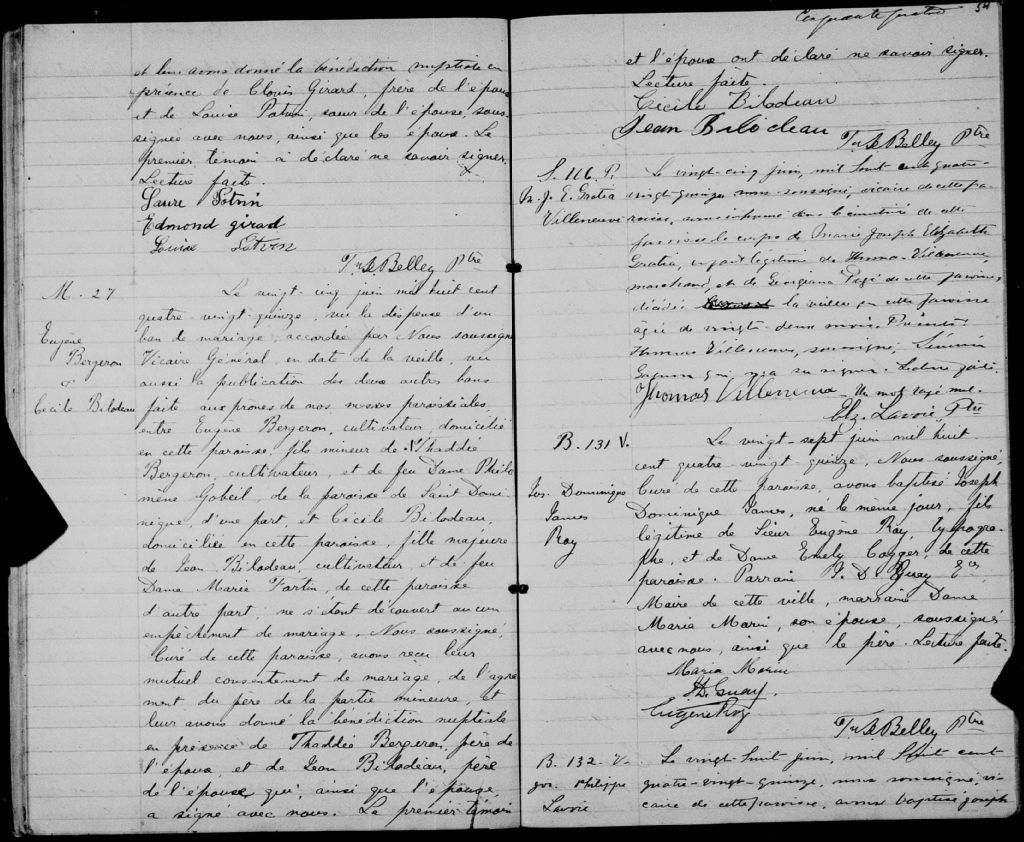 et leur avons donné la bénédiction nuptiale en
présence de Clovis Girard, frère de l'époux
et de Louise Potvin, sœur de l'épouse, sous-
signée avec nous, ainsi que les époux. Le
premier témoin a déclaré ne savoir signer.
Lecture faite.
Laure Potvin
Edmond Girard
Louise Potvin
Belley Ptre
M. 27
Eugène
Bergeron
&
Cécile Bilodeau
Le vingt-cinq juin mil huit cent
quatre-vingt-quinze, vu la dispense d'un
ban de mariage, accordée par Nous soussigné
Vicaire Général en date de la veille, vu
aussi la publication des deux autres bans
faite aux prones de nos messes paroissiales,
entre Eugène Bergeron, cultivateur, domicilié
en cette paroisse, fils mineur de Thaddée
Bergeron, cultivateur, et de feu Dame Philo
mène Gobeil, de la paroisse de Saint Domi-
nique, d'une part, et Cécile Bilodeau,
domiciliée en cette paroisse, fille majeure
de Jean Bilodeau, cultivateur, et de feu
Dame Marie Fortin, de cette paroisse
d'autre part; ne s'étant découvert aucun
empêchement de mariage, Nous soussigné,
Curé de cette paroisse, avons reçu leur
mutuel consentement de mariage, de l'agré
ment du père de la partie mineure, et
leur avons donné la bénédiction nuptiale
en présence de Thaddée Bergeron, père de
l'époux, et de Jean Bilodeau, père
de l'épouse qui, ainsi que l'épouse,
a signé avec nous. Le premier témoin
Cinquante quatre 54
et l'époux ont déclaré ne savoir signer.
Lecture faite.
Cécile Bilodeau
Jean Bilodeau
Belley Ptre
S. 116. P.
M. J. E. Gratia
Villeneuve
Le vingt-cinq juin, mil huit cent quatre-
vingt-quinze, nous soussigné, vicaire de cette pa-
roisse, avons inhumé dans le cimetière de cette
paroisse le corps de Marie Joseph Elizabeth
Gratia, enfant légitime de Thomas Villeneuve,
marchand, et de Georgiana Pagé de cette paroisse,
décédée la veille en cette paroisse
âgée de vingt-deux mois. Présents:
Thomas Villeneuve, soussigné,
Gagnon qui n'a su signer. Lecture faite.
Thomas Villeneuve Un mot rayé nul.
Elz. Lavoie Ptre
B. 131 V.
Jos. Dominique
James
Roy
Le vingt-sept juin mil huit
cent quatre-vingt-quinze, Nous soussigné,
Curé de cette paroisse, avons baptisé Joseph
Dominique James, né le même jour, fils
légitime de Sieur Eugène Roy, typogra-
phe, et de Dame Emely Cogger, de cette
paroisse. Parrain J. D. Guay Ecr,
Maire de cette ville, marraine Dame
Maria Morin, son épouse, soussignés
avec nous, ainsi que le père. Lecture faite.
Maria Morin
J. D. Guay.
Eugène Roy
Belley Ptre
B. 132. V.
Jos. Philippe
Lavoie
Le vingt-huit juin, mil huit cent
quatre-vingt-quinze, nous soussigné, vi-
caire de cette paroisse, avons baptisé Joseph